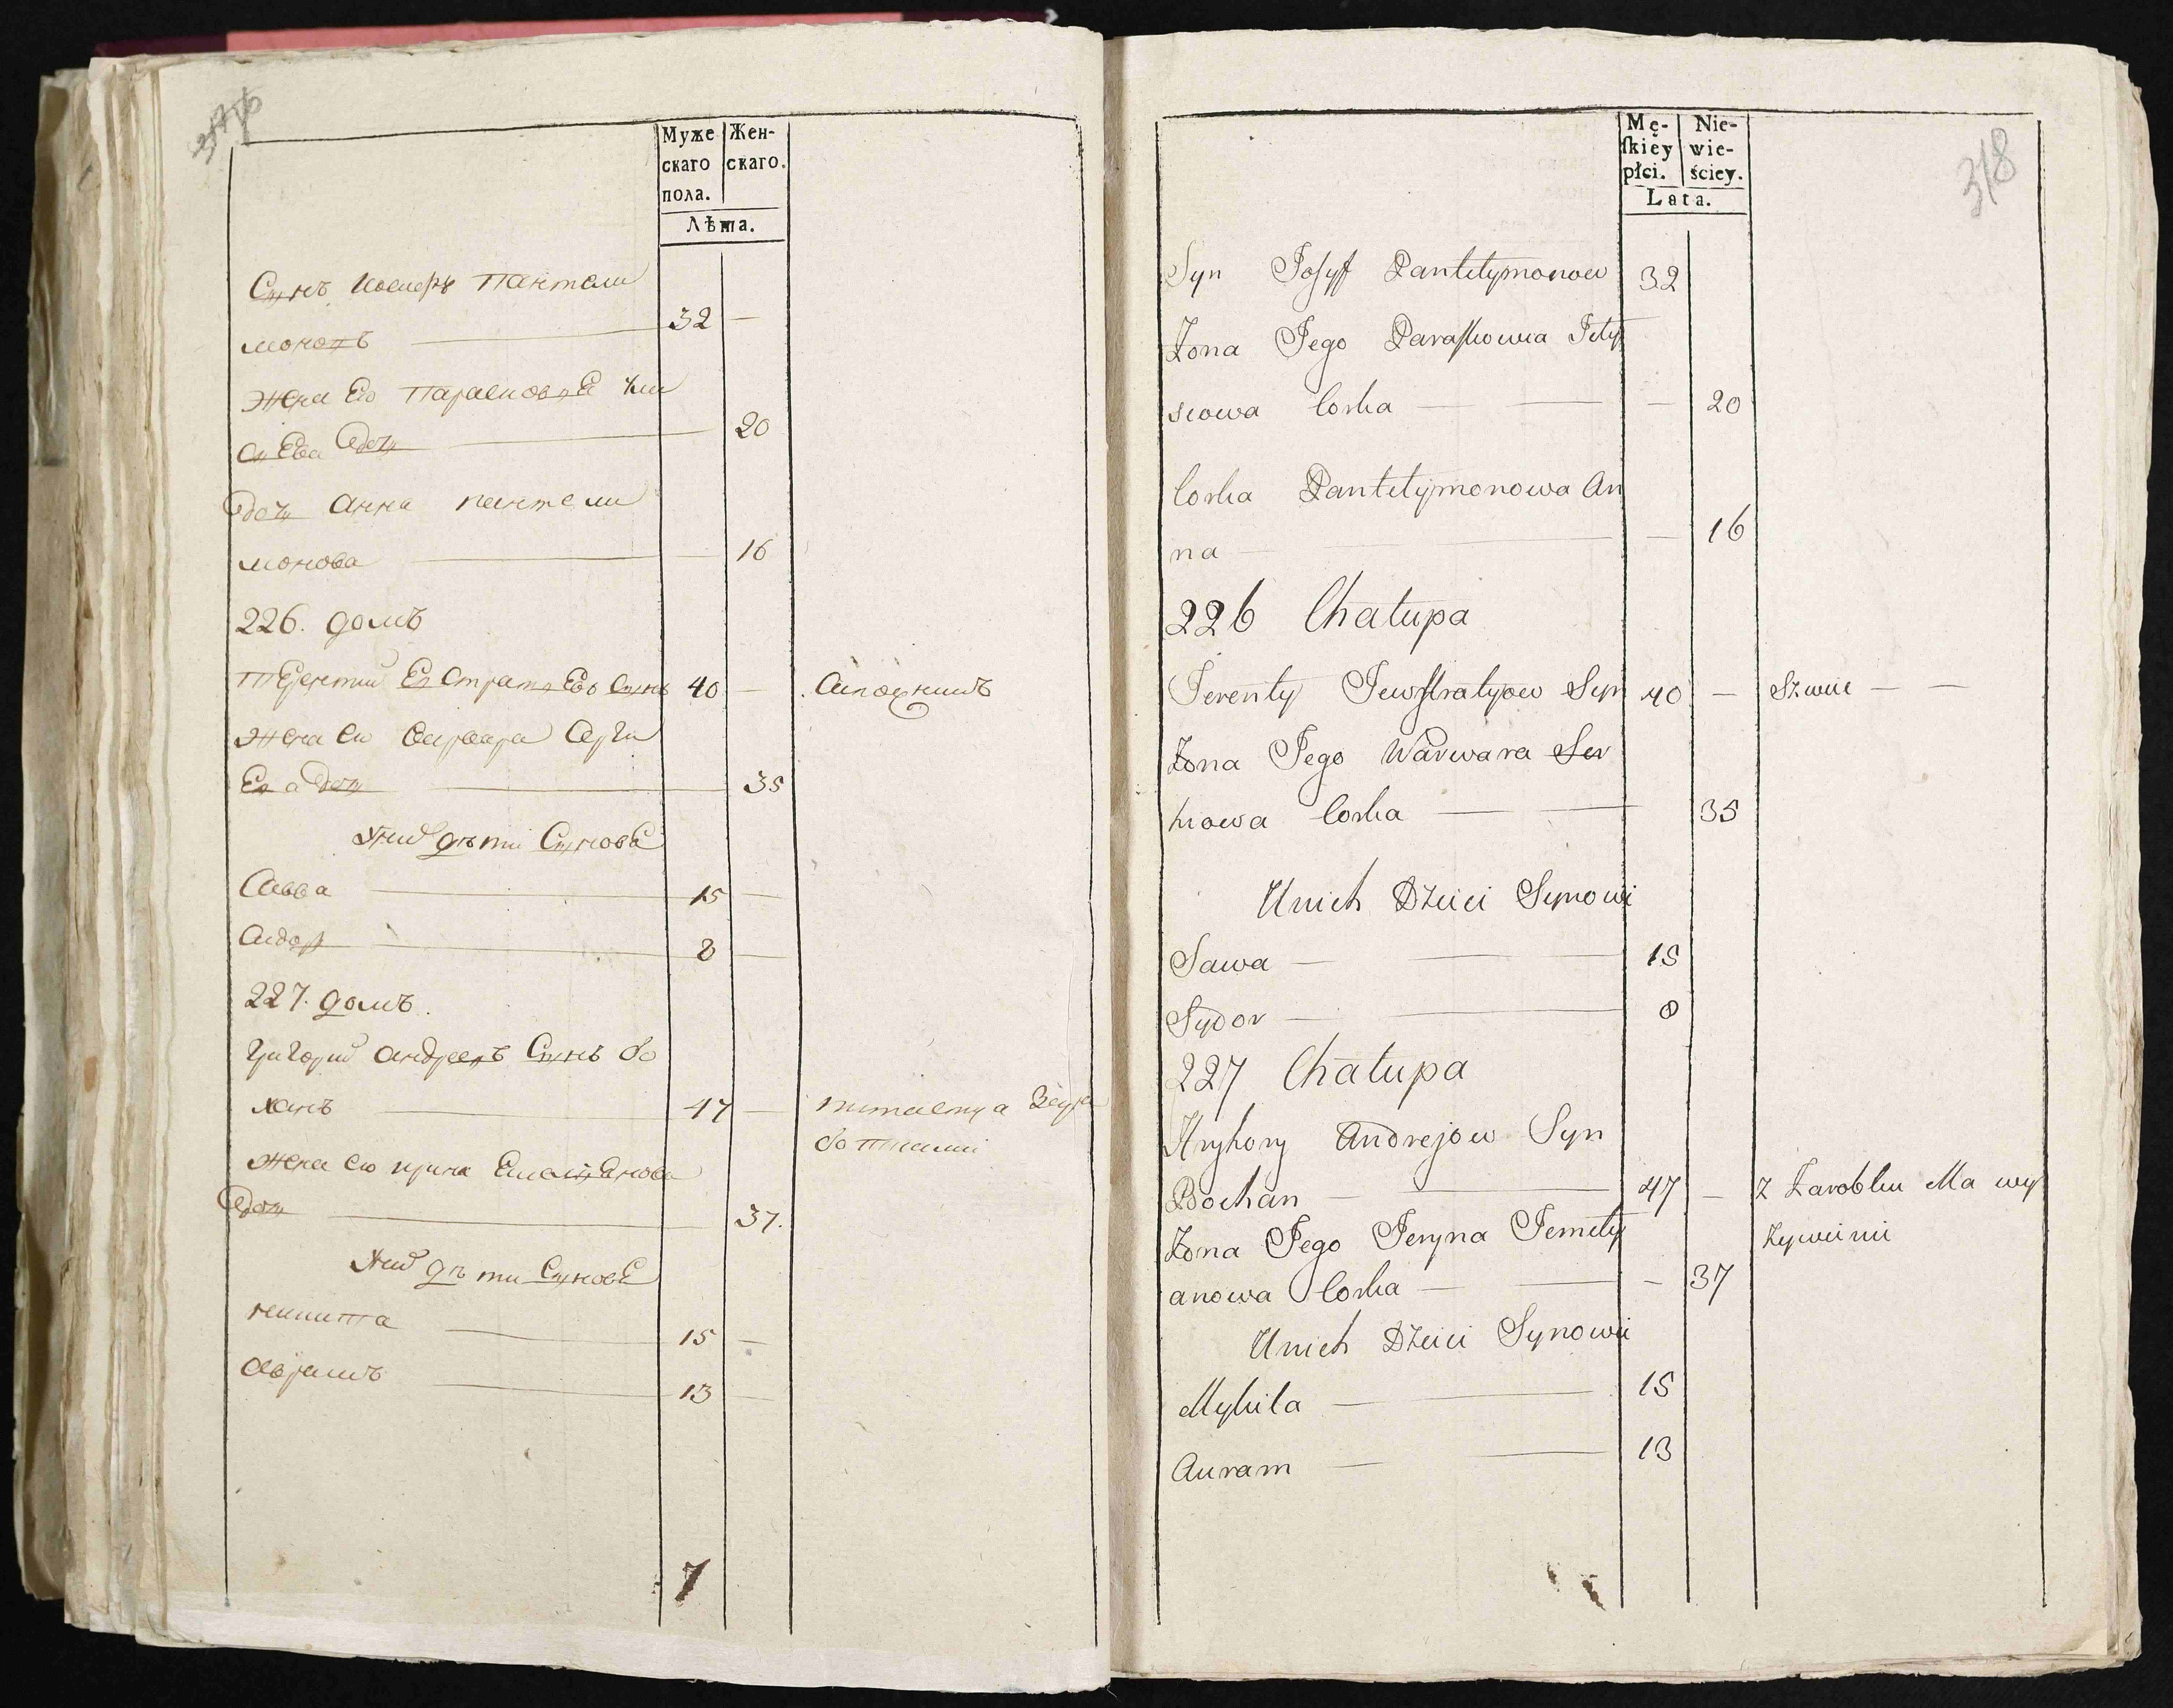 Муже
скаго
пола.
Жен-
скаго.
Лѣта.
Сынъ Иосифъ Пантели
моновъ 32 —
Жена Его Парасковея Ели
сѣева дочь 20
Дочь Анна Пантели
монова — 16
226. домъ
Терентий Евстратиевъ Сынъ 40 — Сапожникъ
Жена Его Варвара Серги
Ева дочь 35
У них дѣти Сынове
Савва 15 —
Сидор 8 —
227. домъ.
Григорий Андреевъ Сынъ Бо
ханъ 47 — питаетця Зара
ботками
Жена Его Ирина Емельянова
дочь 37.
У них дѣти Сынове
Никита 15 —
Аврамъ 13 —
7
318
Mę-
ſkiey
płci.
Nie-
wie-
ściey.
Lata.
Syn Josyff Pantelymonow 32
Żona Jego Paraskowia Jely
siowa Corka — — — 20
Corka Pantelymonowa An
na — — — 16
226 Chałupa
Terenty Jewstratyow Syn 40 — Szwiec — —
Żona Jego Warwara Ser
hiowa Corka — — 35
Unich Dzieci Synowie
Sawa — — 15
Sydor — — 8
227 Chałupa
Hryhory Andrejow Syn
Bochan — — 47 — Z Zarobku Ma wy
Żywienie
Żona Jego Jeryna Jemely
anowa Corka — — — 37
Unich Dzieci Synowie
Mykita — — 15
Auram — — 13